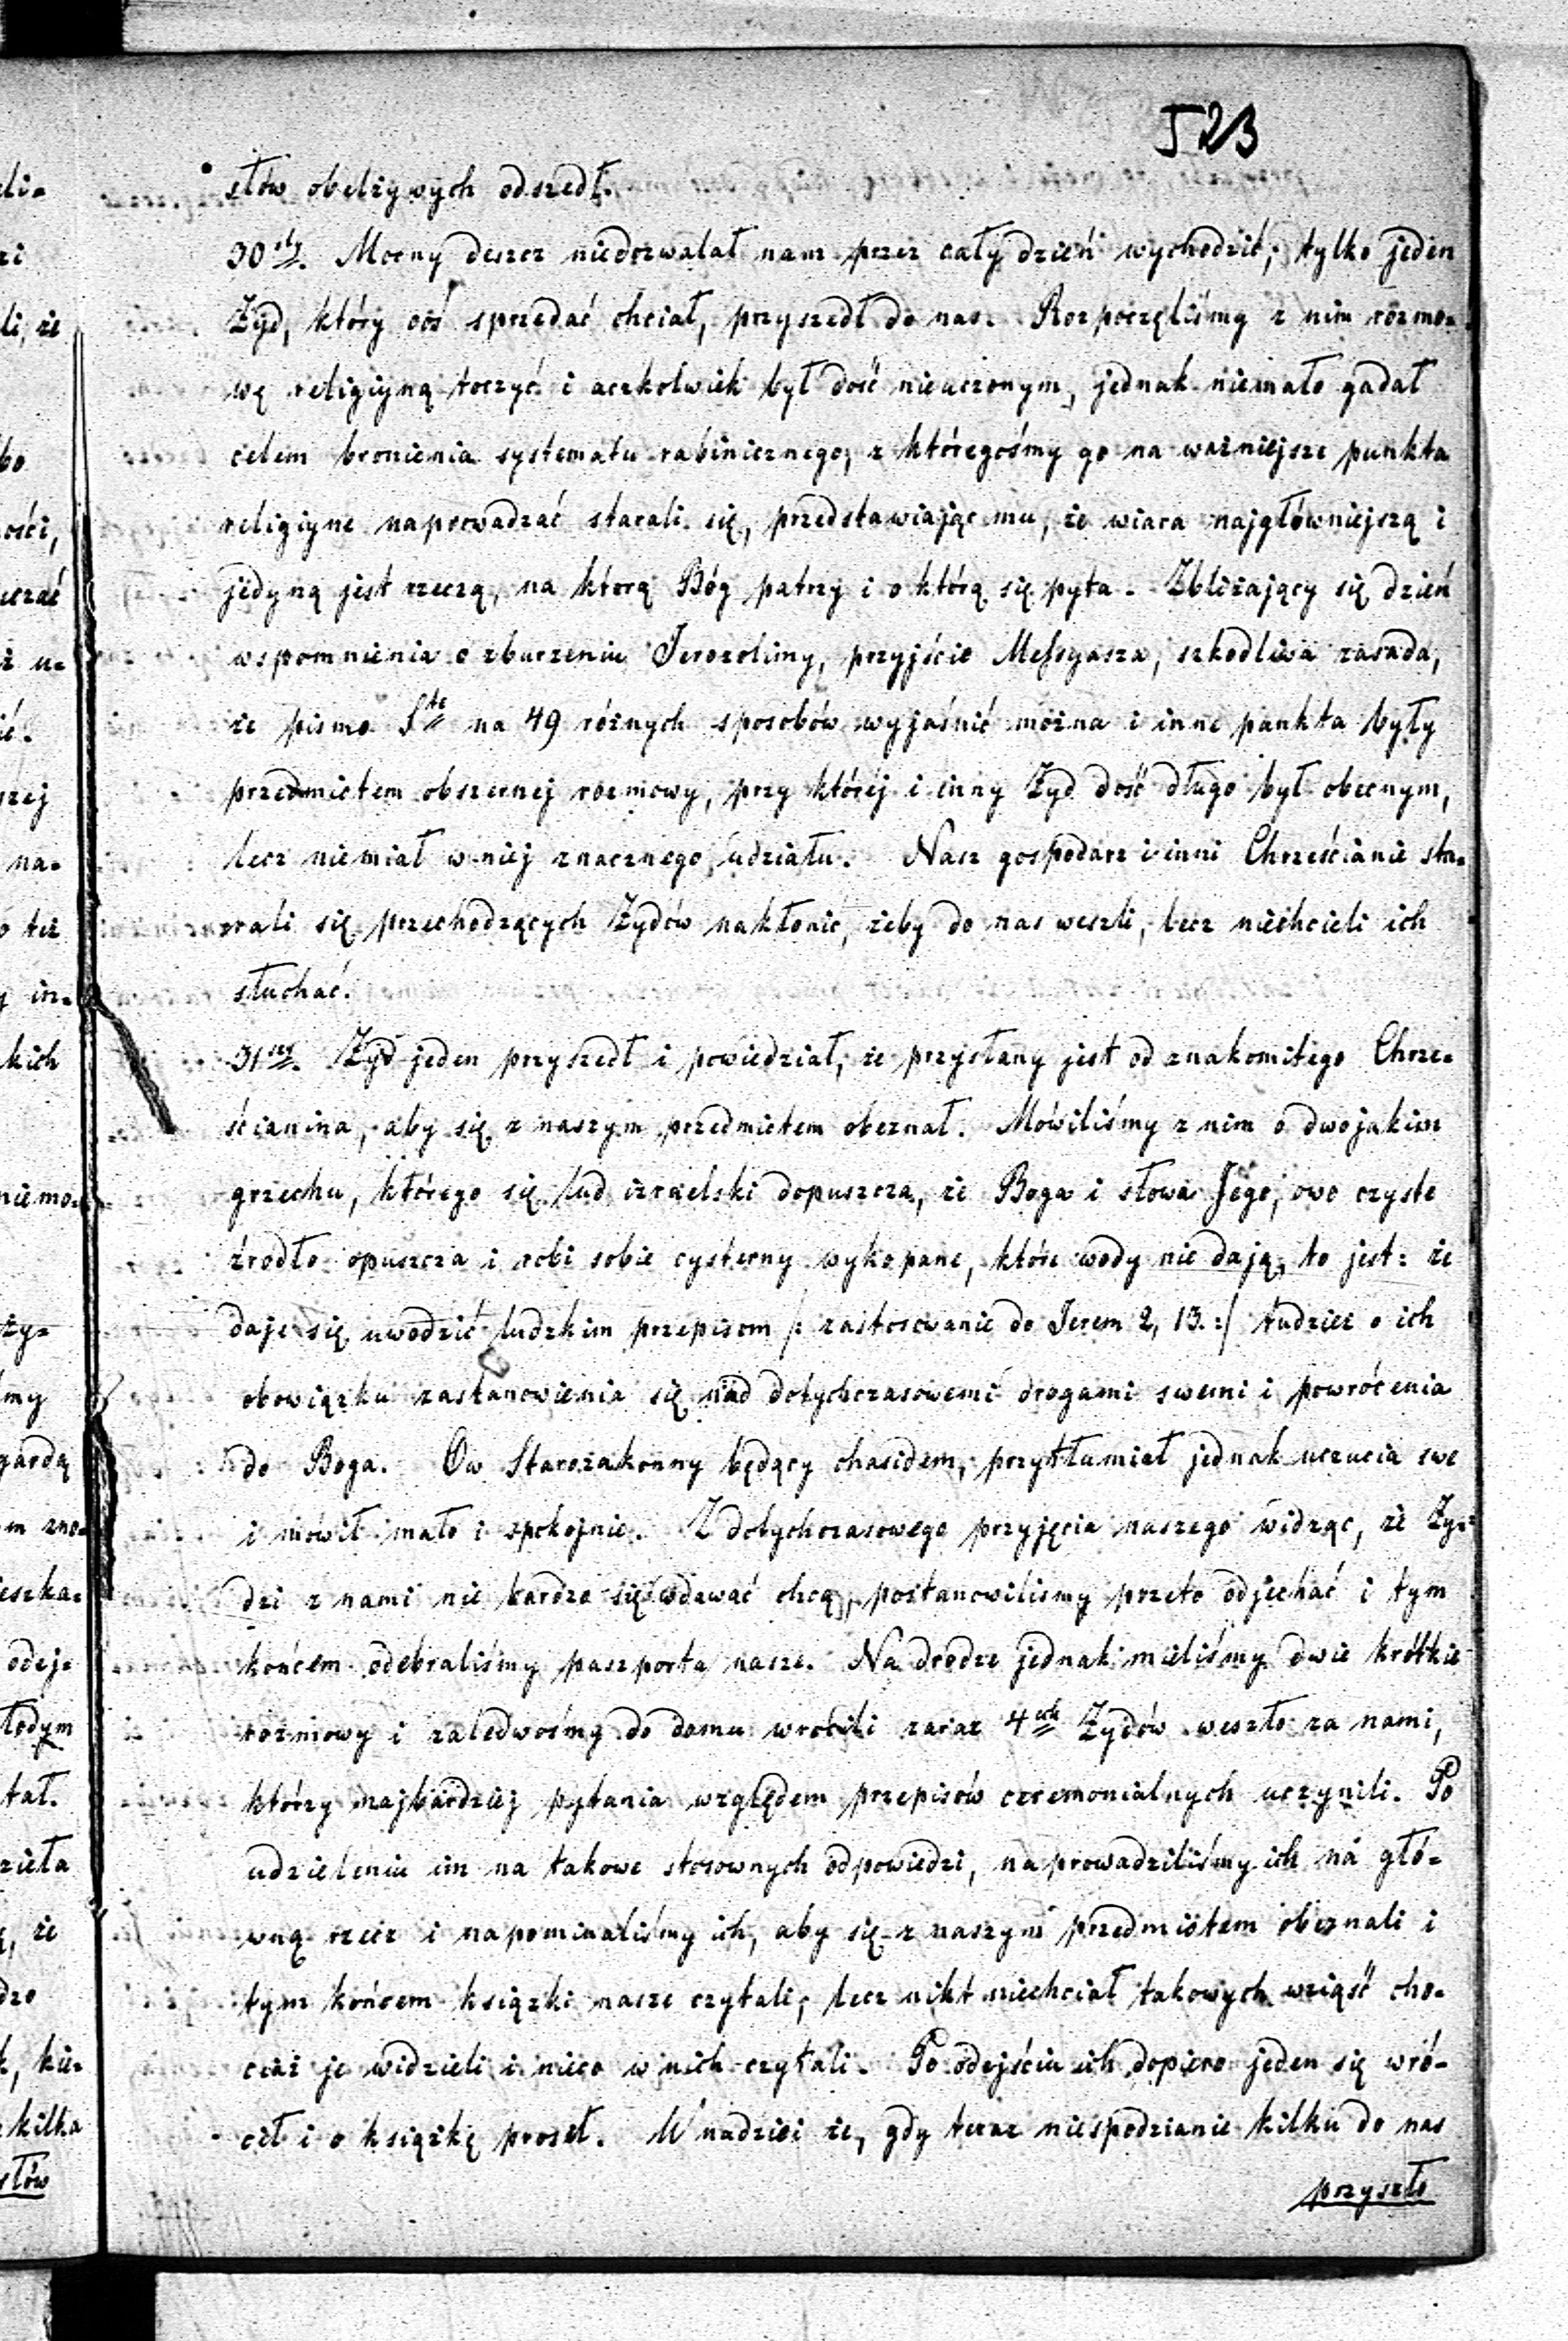 523
słów obelżywych odszedł.
30sty. Mocny deszcz niedozwalał nam przez cały dzień wychodzić; tylko jeden
Żyd, który coś sprzedać chciał, przyszedł do nas. Rozpoczęliśmy z nim rozmo-
wę religiyną toczyć i aczkolwiek był dość nieuczonym, jednak niemało gadał
celem bronienia systematu rabinicznego, z któregośmy go na ważniejsze punkta
religiyne naprowadzać starali się, przedstawiając mu, że wiara najgłówniejszą i
jedyną jest rzeczą, na którą Bóg patrzy i o którą się pyta. Zbliżający się dzień
wspomnienia o zburzeniu Jerozolimy, przyjście Messyasza, szkodliwa zasada,
że pismo Ste na 49 różnych sposobów wyjaśnić można i inne punkta były
przedmiotem obszernej rozmowy, przy któréj i inny Żyd dość długo był obecnym,
lecz niemiał w niej znacznego udziału. Nasz gospodarz i inni Chrześcianie sta-
rali się przechodzących Żydów nakłonić, żeby do nas weszli, lecz niechcieli ich
słuchać.
31szy. Żyd jeden przyszedł i powiedział, że przysłany jest od znakomitego Chrze-
ścianina, aby się z naszym przedmiotem obeznał. Mówiliśmy z nim o dwojakim
grzechu, którego się lud izraelski dopuszcza, że Boga i słowa Jego, owo czyste
źrodło opuszcza i robi sobie cysterny wykopane, które wody nie dają, to jest: że
daje się uwodzić ludzkim przepisom /: zastosowanie do Jerem 2, 13. :/ tudzież o ich
obowiązku zastanowienia się nad dotychczasowemi drogami swemi i powrócenia
do Boga. Ów Starozakonny będący chasidem, przytłumiał jednak uczucia swe
i mówił mało i spokojnie. Z dotychczasowego przyjęcia naszego widząc, że Ży-
dzi z nami nie bardzo się wdawać chcą, postanowiliśmy przeto odjechać i tym
końcem odebraliśmy paszporta nasze. Na drodze jednak mieliśmy dwie krótkie
rozmowy i zaledwośmy do domu wrócili zaraz 4ech Żydów weszło za nami,
którzy najbardziej pytania względem przepisów ceremonialnych uczynili. Po
udzieleniu im na takowe stosownych odpowiedzi, naprowadziliśmy ich na głó-
wną rzecz i napominaliśmy ich, aby się z naszym przedmiotem obeznali i
tym końcem książki nasze czytali; lecz nikt niechciał takowych wziąść cho-
ciaż je widzieli i nieco w nich czytali. Po odejściu ich dopiero jeden się wró-
cił i o książkę prosił. W nadziei że, gdy teraz niespodzianie kilku do nas
przyszło